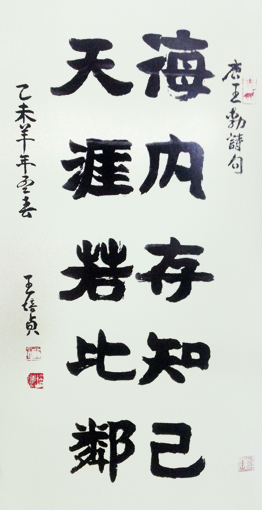 唐王勃詩句
海内存知己
天涯若比鄰
乙未羊年孟春
王培貞